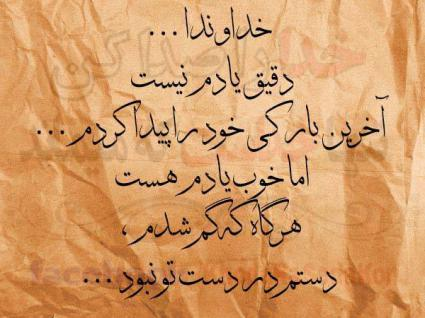 خداوندا ...
دقیق یادم نیست
آخرین بار کی خود را پیدا کردم ...
اما خوب یادم هست
هرگاه که گم شدم ،
دستم در دست تو نبود ...